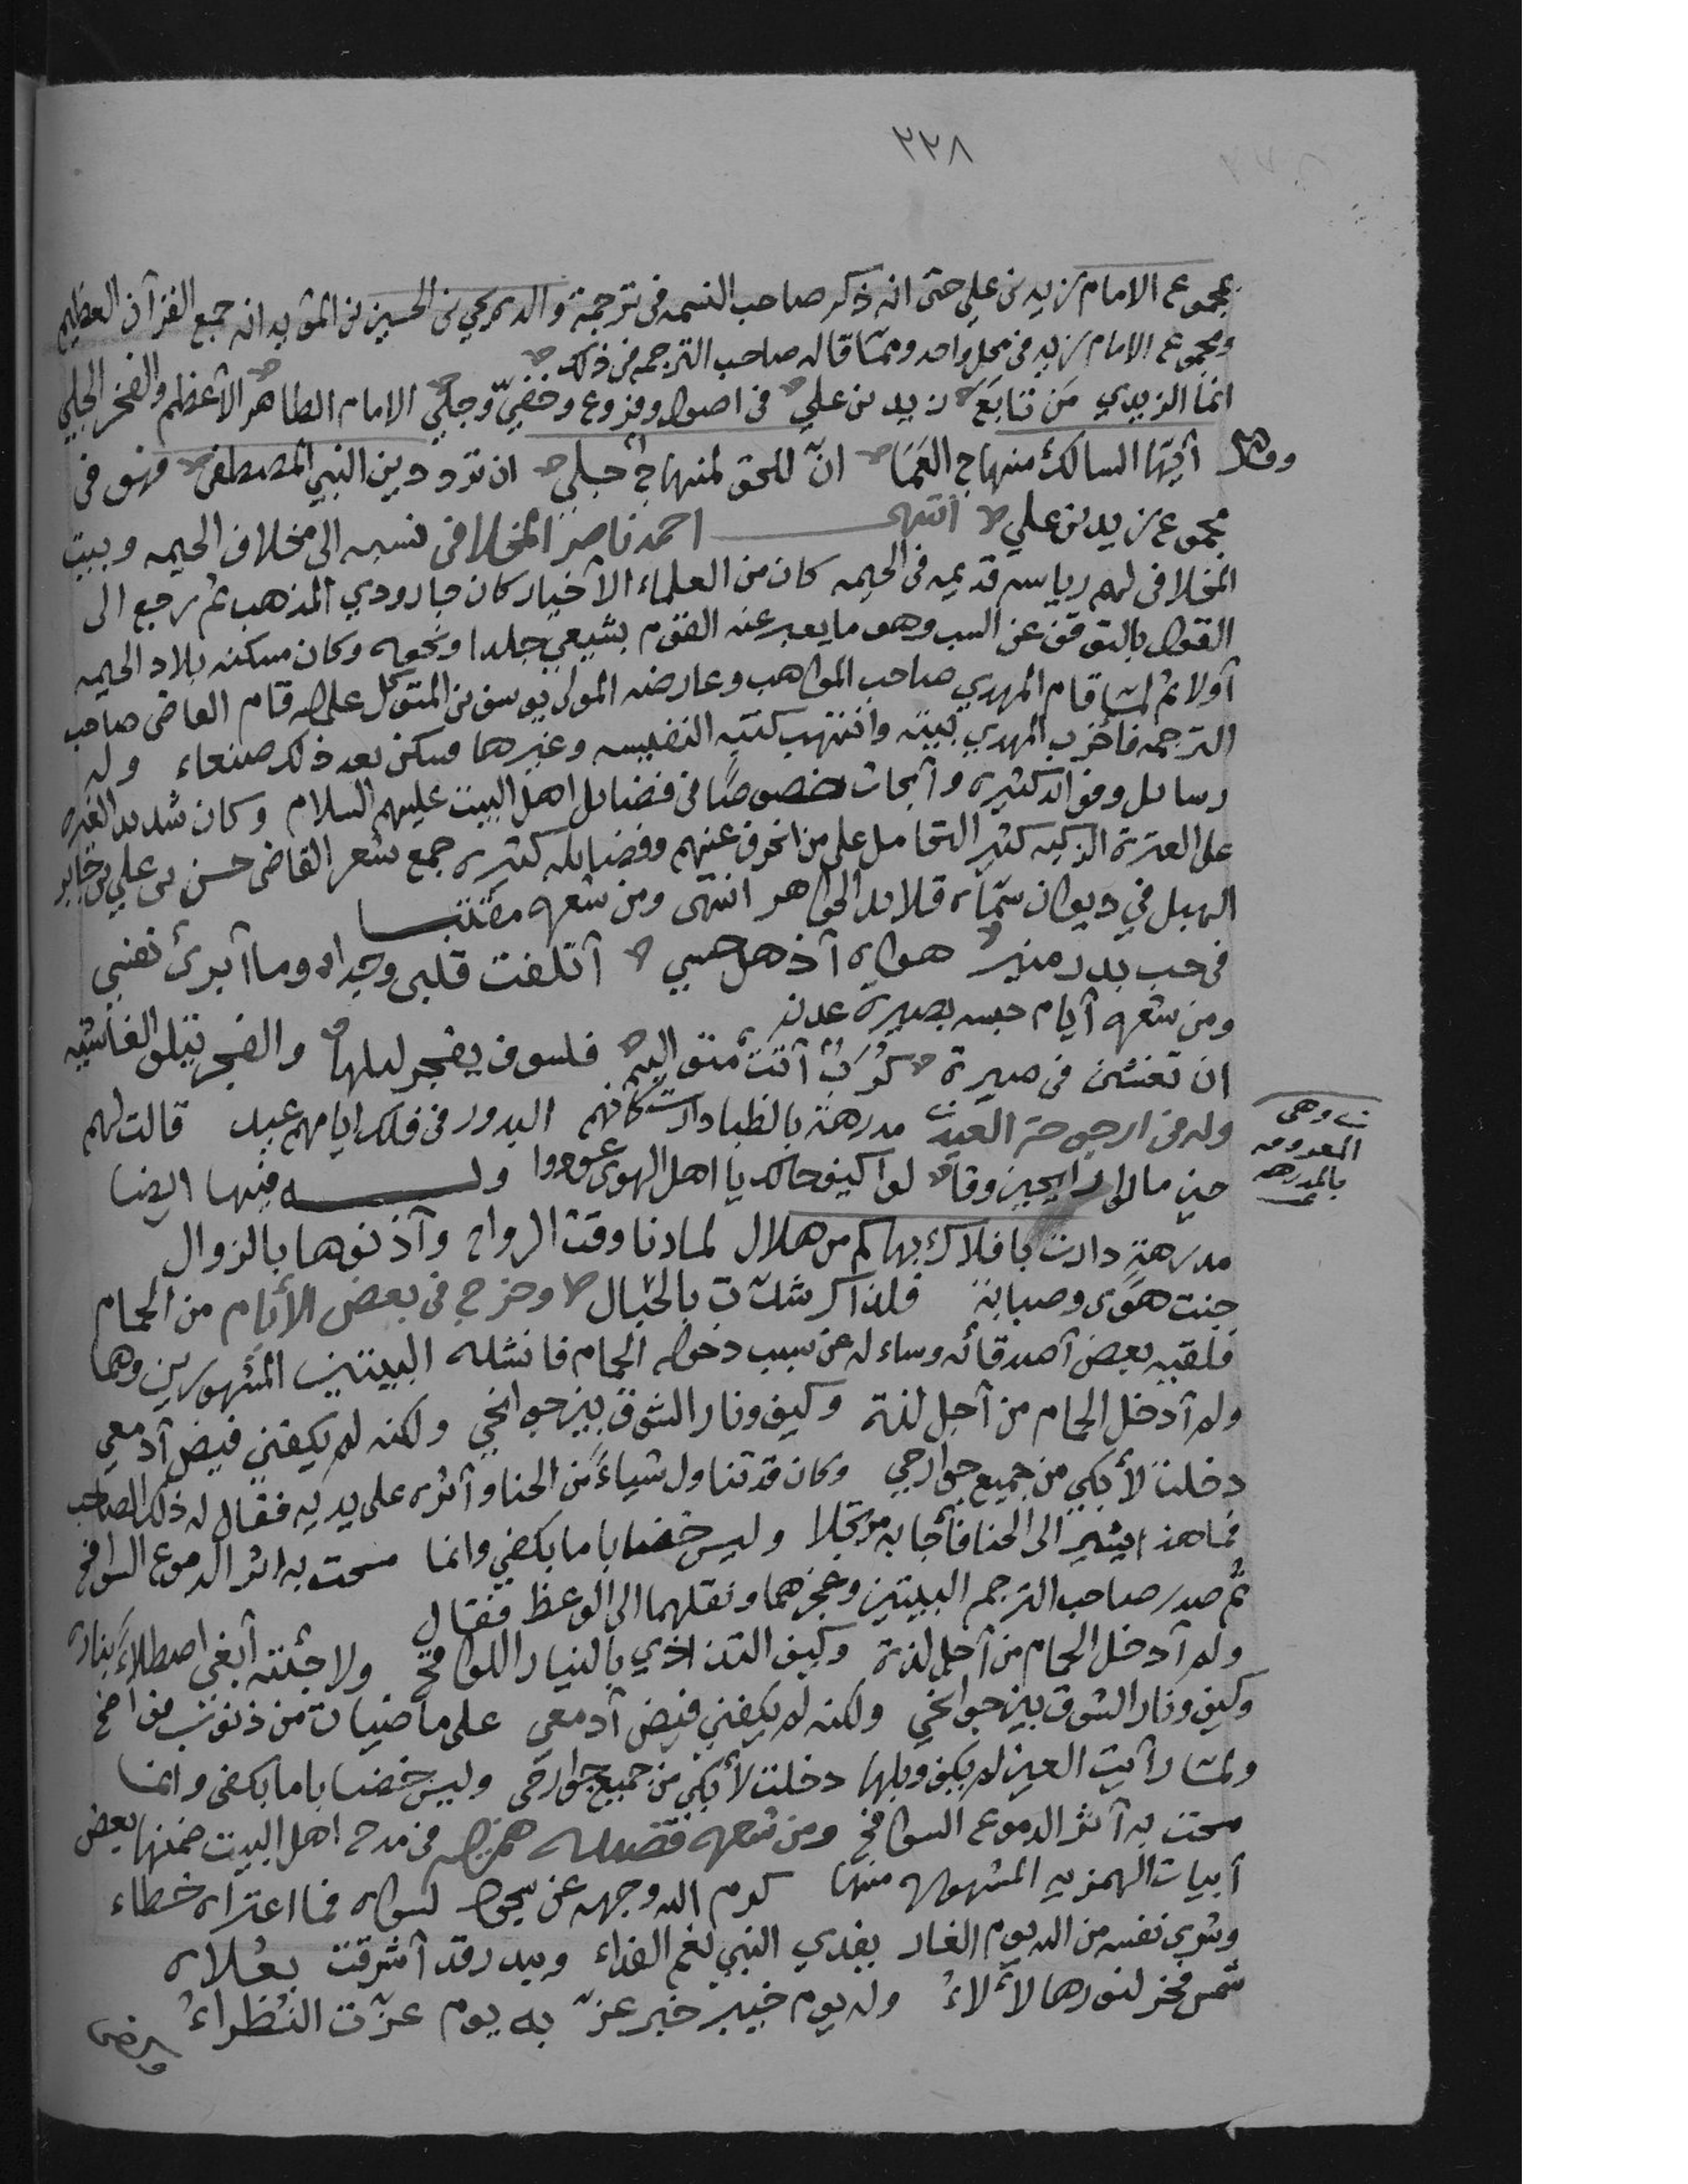 ٢٣٨
بمجموع الامام زيد بن علي حتى انه ذكر صاحب النسمه فى ترجمة والده يحيى بن الحسين بن المؤيد انه جمع القرآن العظيم
ومجموع الامام زيد فى محل واحد ومما قاله صاحب الترجمه فى ذلك
انما الزيدي مَن تابَعَ زيد بن علي فى اصول وفروع وخفيّ وجليّ الامام الطاهر الأعظم والفخر الجلي
وقال أيّها السالك منهاج العَمَا انّ للحق لمنهاج جلي ان ترد دين النبي المصطفى فهو فى
مجموع زيد بن علي انتهى احمد ناصر المخلافى نسبه الى مخلاف الحيمه وبيت
المخلافى لهم رياسه قديمه فى الحيمه كان من العلماء الأخيار كان جارودي المذهب ثم رجع الى
القول بالتوقف عن السب وهو ما يعبر عنه القوم بشيعي جلدا ونحوه وكان مسكنه بلاد الحيمه
أولا ثم لما قام المهدي صاحب المواهب وعارضه المولى يوسف بن المتوكل على الله قام القاضى صاحب
الترجمه فأخرب المهدي بيته وانتهب كتبه النفيسه وغيرها فسكن بعد ذلك صنعاء وله
رسائل وفوائد كثيره وأبحاث خصوصًا فى فضائل اهل البيت عليهم السلام وكان شديد الغيره
على العترة الزكيه كثير التحامل على من انحرف عنهم وفضايله كثيره جمع شعر القاضى حسن بن علي بن جابر
الهبل في ديوان سمّاه قلائد الجواهر انتهى ومن شعره مقتبسا
فى حب بدر منير هواه أذهل حسي أتلفت قلبى وجدا وما أبرئ نفسي
ومن شعره أيام حبسه بصيرة عدن
ان تغشين فى صيرة كُرَبٌ أتت متواليه فلسوف يفجر ليلها والفجر يتلو الغاشيه
وله فى ارجوحة العيد مدرهة بالظبا دارت كأنهم البدور فى فلك ايامهم عيد قالت لهم
حين مالوا رايحين وقا لوا كيف حالك يا اهل الهوى عودوا وله فيها ايضا
وهى
المعروفه
بالمدرهه
مدرهةٍ دارت بافلاك بها كم من هلال لما دنا وقت الرواح وآذنوها بالزوال
جنت هوًى وصبابة فلذاك شدّت بالحبال وخرج فى بعض الأيام من الحمام
فلقيه بعض أصدقائه وساءله عن سبب دخوله الحمام فانشده البيتين المشهورين وهما
ولم أدخل الحمام من أجل لذة وكيف ونار الشوق بين جوانحي ولكنه لم يكفني فيض أدمعي
دخلت لأبكي من جميع جوارحي وكان قد تناول شياءً من الحنا وأثره على يديه فقال له ذلك الصاحب
فما هذا يشير الى الحنا فأجابه مرتجلا وليس خضابا ما بكفي وانما مسحت به اثر الدموع السوافح
ثم صدر صاحب الترجمه البيتين وعجزهما ونقلهما الى الوعظ فقال
ولم أدخل الحمام من أجل لذة وكيف التذاذي بالنيار اللوافح ولا جئته أبغى اصطلاءً بناره
وكيف ونار الشوق بين جوانحي ولكنه لم يكفني فيض أدمعي على ماضيات من ذنوب فواضح
ولما رأيت العين لم يكف وبلها دخلت لأبكي من جميع جوارحى وليس خضابا ما بكفى وانما
مسحت به أثر الدموع السوافح ومن شعره قصيده همزيه فى مدح اهل البيت ضمنها بعض
أبيات الهمزيه المشهوره منها كرم الله وجهه عن سجود لسواه فما اعتراه خطاء
وشرى نفسه من الله يوم الغار يفدي النبي نعم الفداء وببدر قد أشرقت بعُلاه
شمس فخر لنورها لألاءُ وله يوم خيبر خبر عزّ به يوم عزّت النُظراءُ